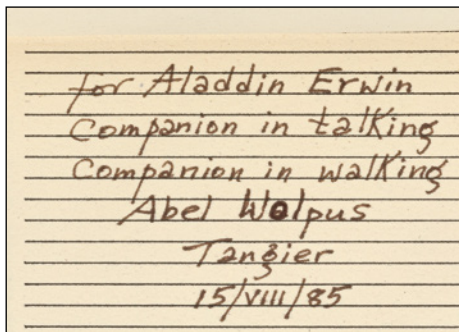 for Aladdin Erwin
Companion in talking
Companion in walking
Abel Wolpus
Tangier
15/VIII/85